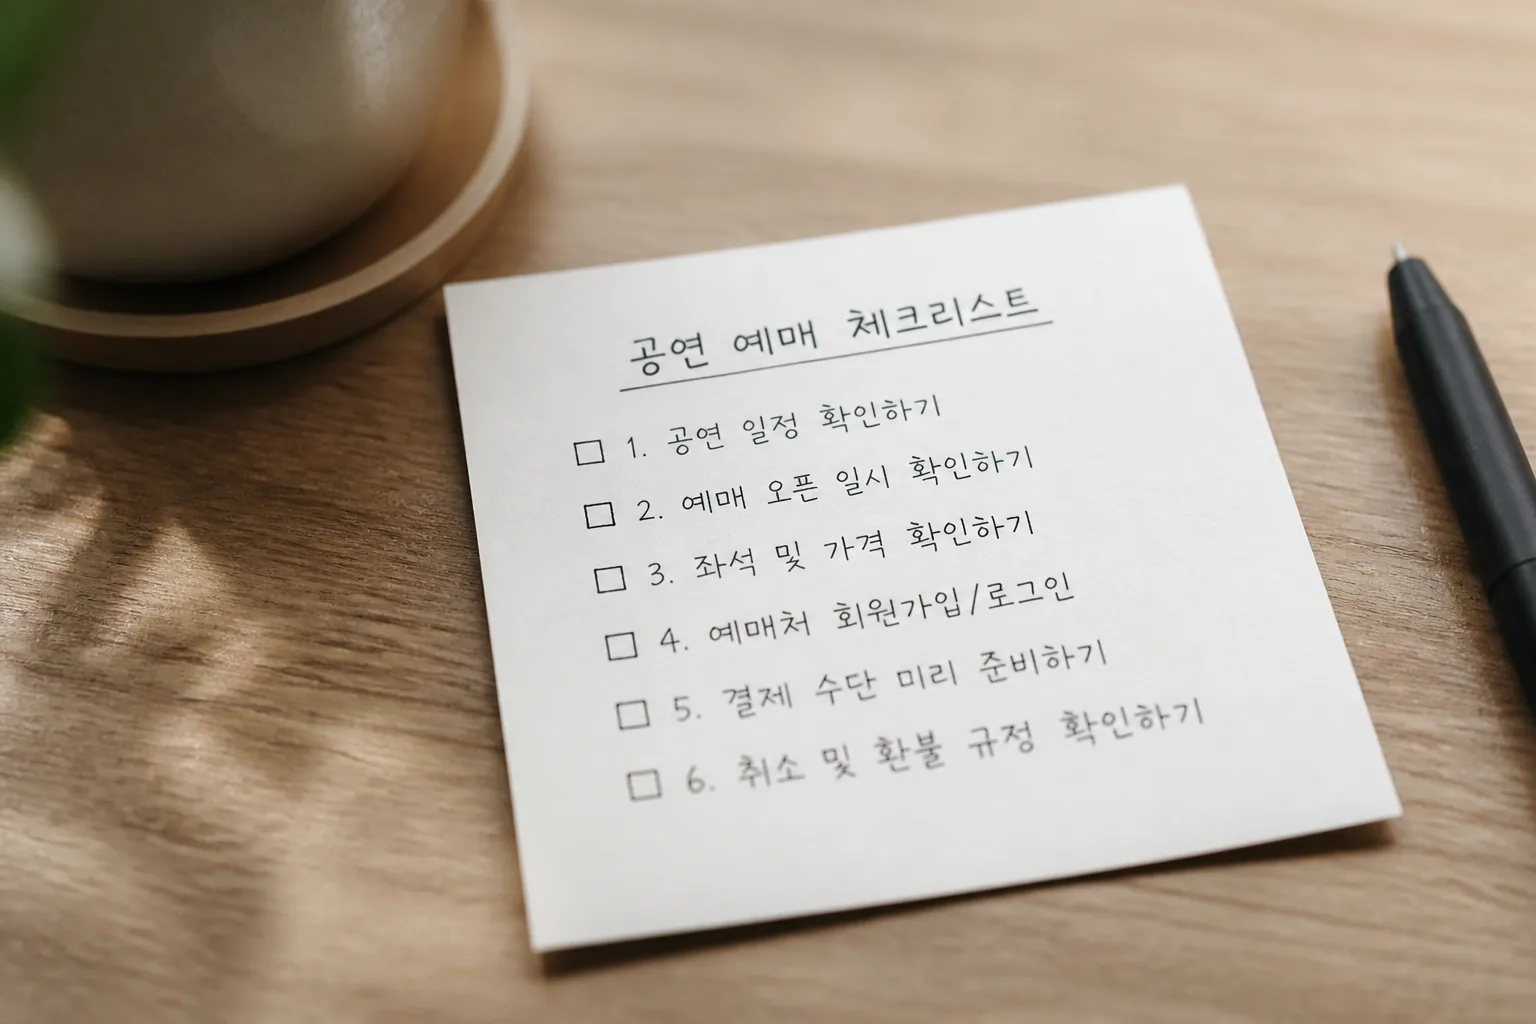 공연 예매 체크리스트
☐ 1. 공연 일정 확인하기
☐ 2. 예매 오픈 일시 확인하기
☐ 3. 좌석 및 가격 확인하기
☐ 4. 예매처 회원가입/로그인
☐ 5. 결제 수단 미리 준비하기
☐ 6. 취소 및 환불 규정 확인하기